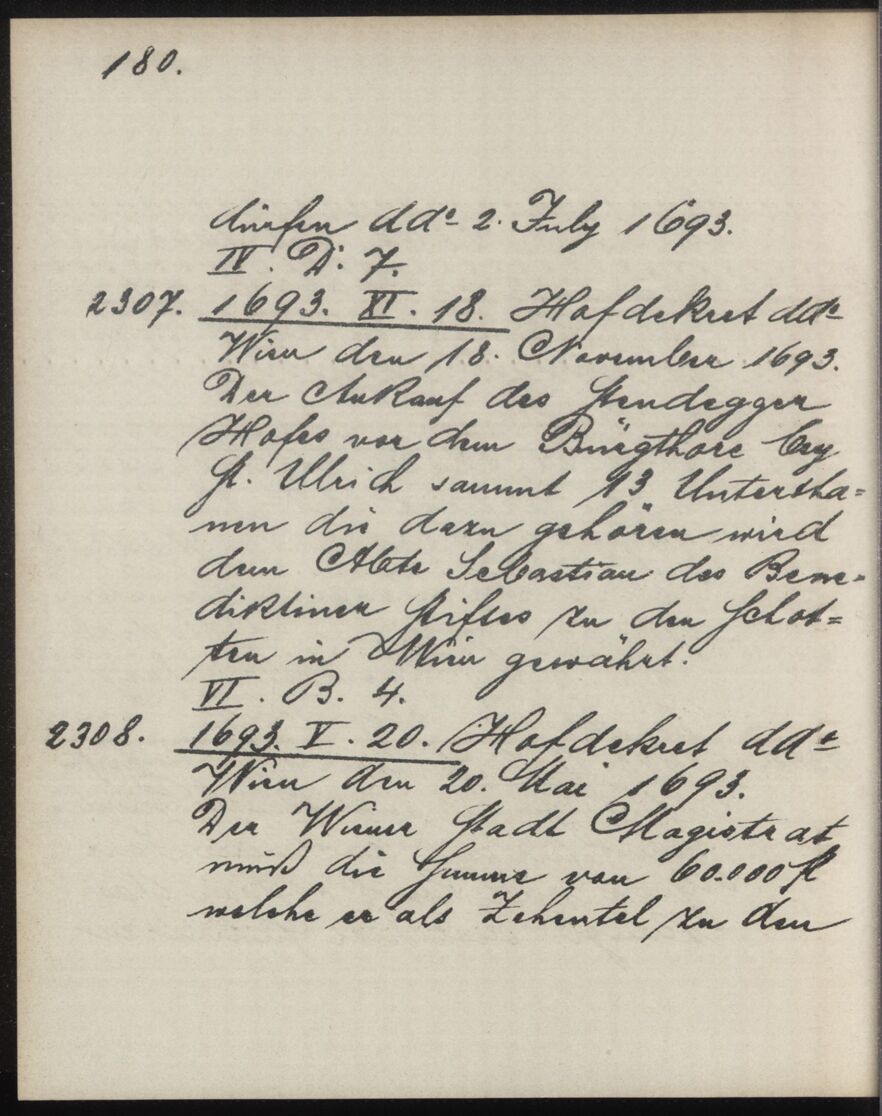 180.
dürfen ddo 2. July 1693.
IV. D. 7.
2307. 1693. XI. 18. Hofdekret ddo
Wien den 18. November 1693.
Der Ankauf des Stendegger
Hofes vor dem Burgthore bey
St. Ulrich sammt 13 Untertha=
nen die dazu gehören wird
dem Abte Sebastian des Bene=
diktiner Stiftes zu den Schot=
ten in Wien gewährt.
VI. B. 4.
2308. 1693. V. 20. Hofdekret ddo
Wien den 20. Mai 1693.
Der Wiener Stadt Magistrat
muß die Summe von 60.000 fl
welche er als Zehentel zu den